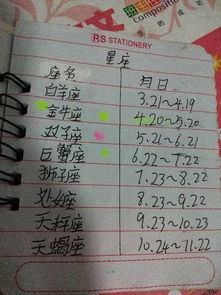 composition
RS STATIONERY
星座
座名 月日
白羊座 3.21~4.19
金牛座 4.20~5.20
双子座 5.21~6.21
巨蟹座 6.22~7.22
狮子座 7.23~8.22
处女座 8.23~9.22
天秤座 9.23~10.23
天蝎座 10.24~11.22